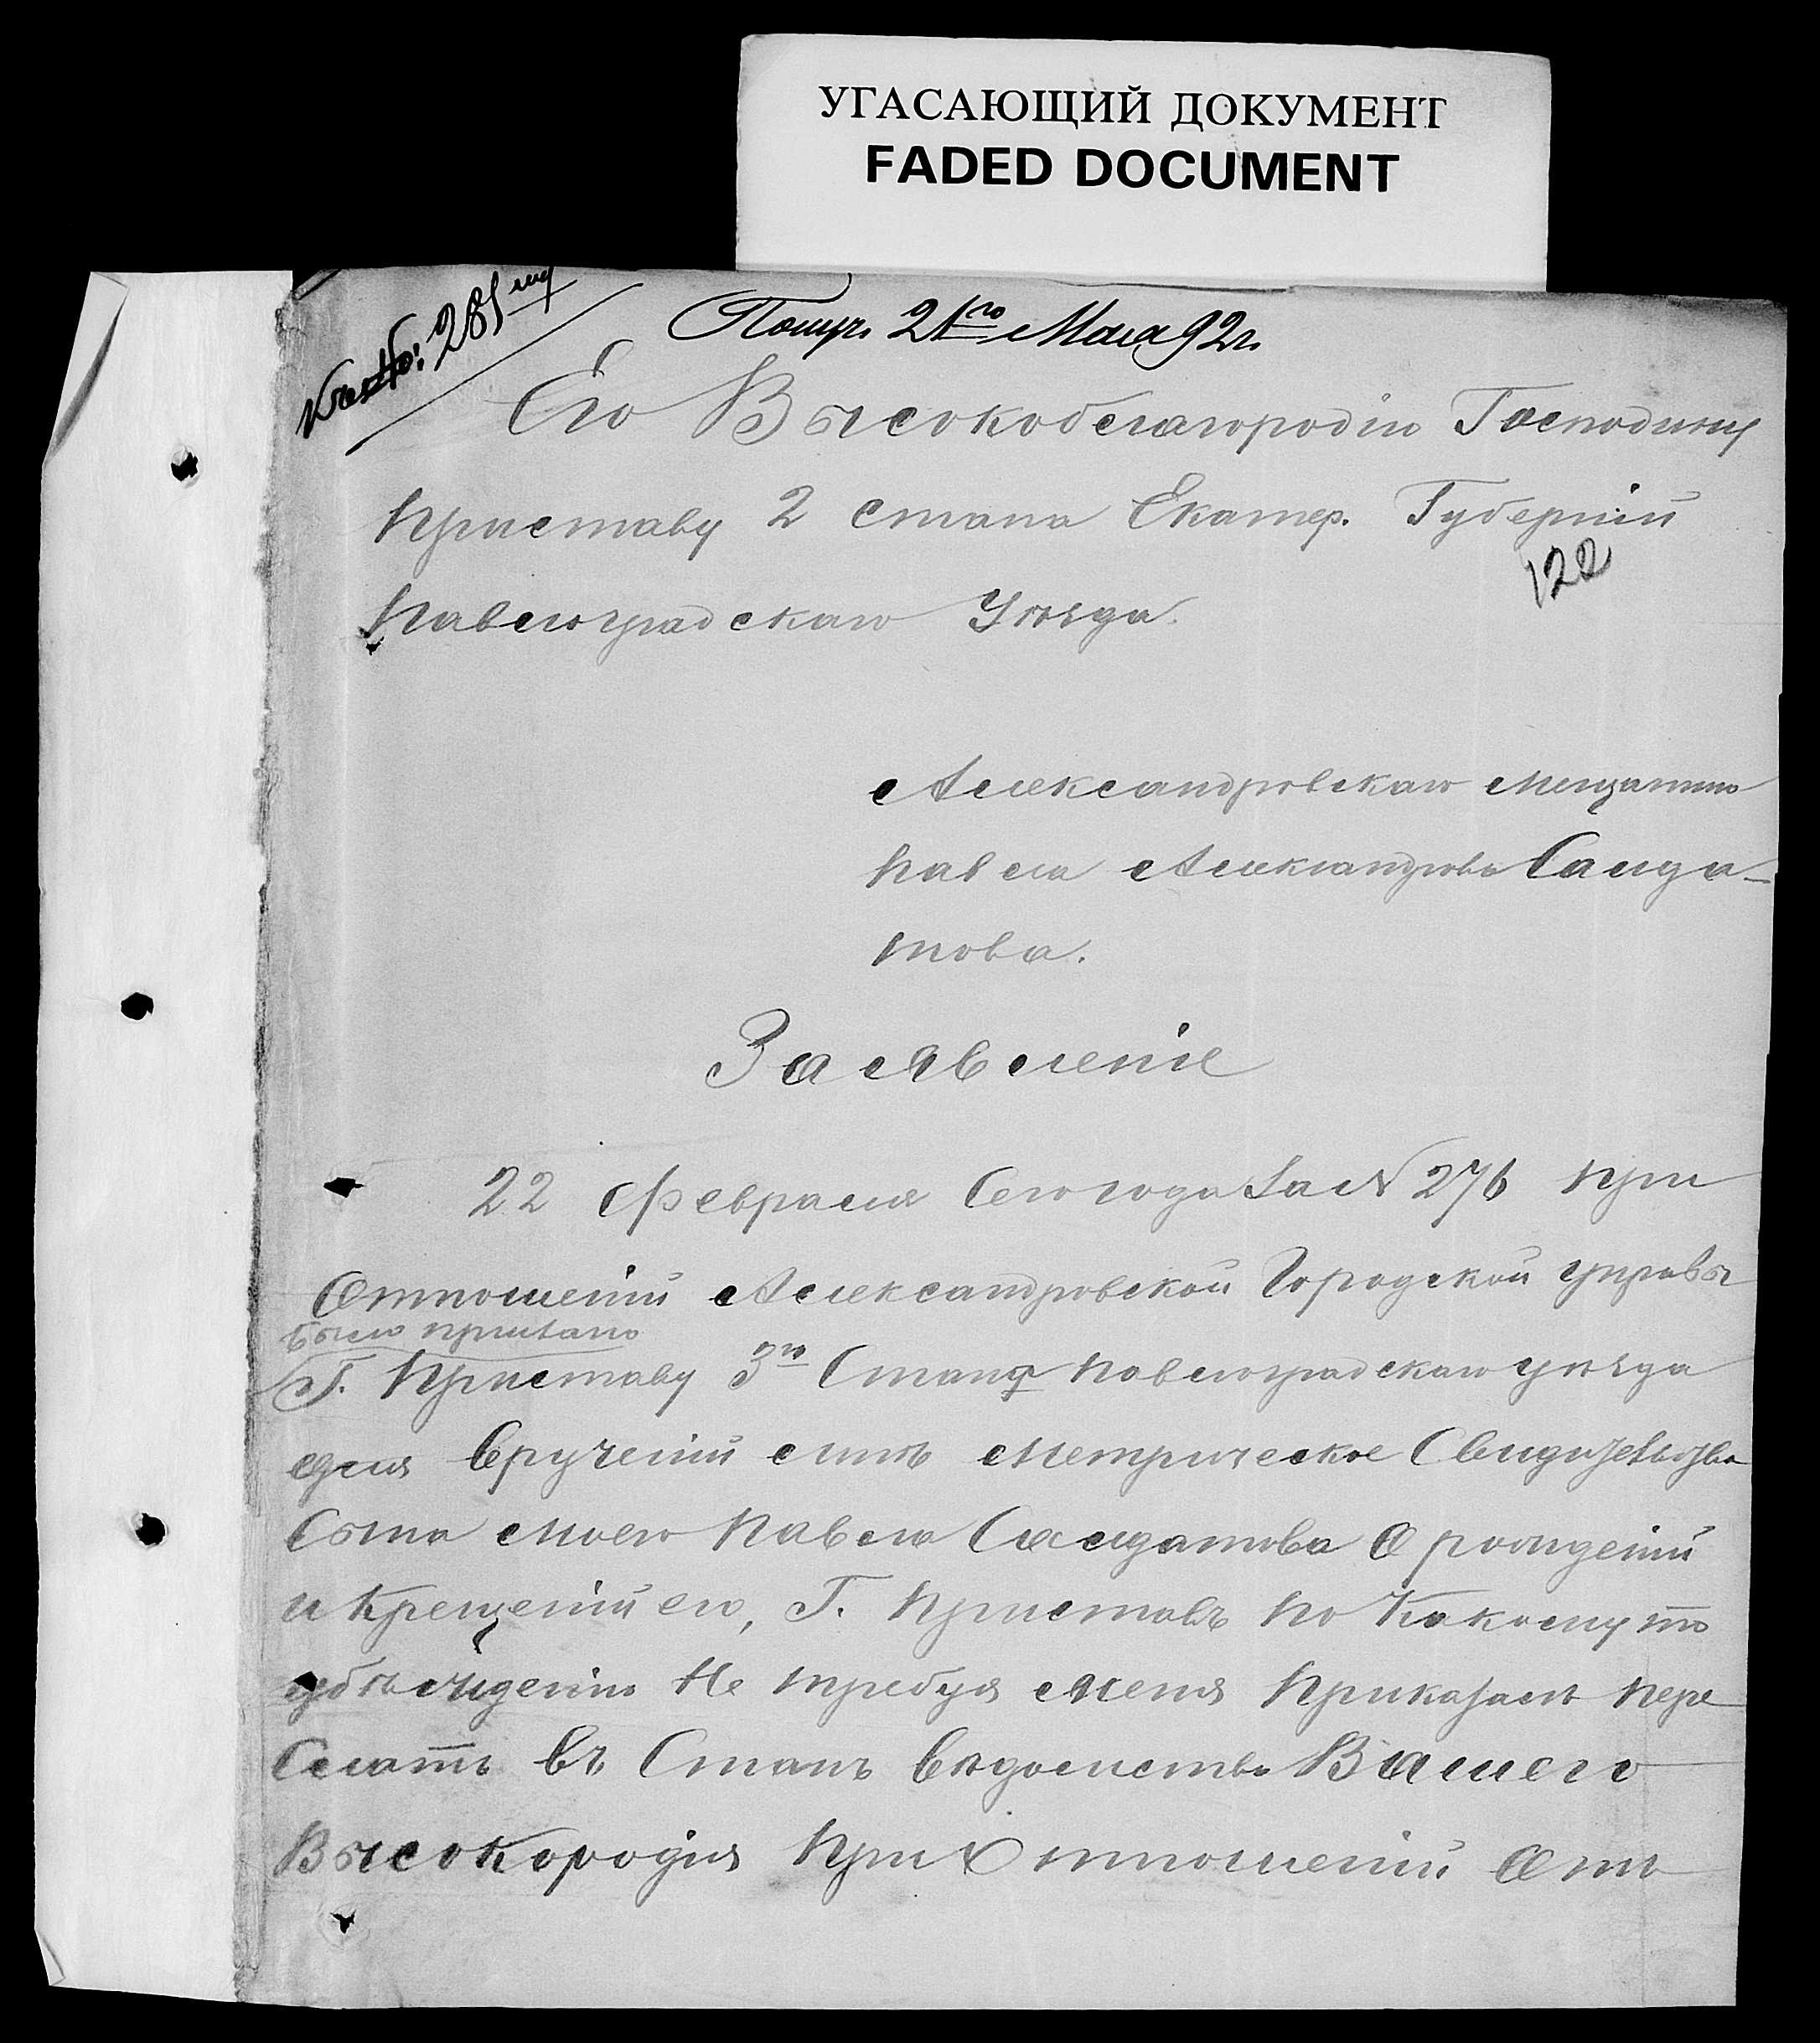 УГАСАЮЩИЙ ДОКУМЕНТ
FADED DOCUMENT
Получ. 21го Мая 92 г.
Его Высокоблагородію Господину
Приставу 2 стана Екатер. Губерніи
122
Павлоградскаго Уѣзда.
Александровскаго мещанина
Павла Александрова Салда-
това.
Заявленіе
22 Февраля Сего года За № 276 при
Отношеніи Александровской Городской управы
было прислано
Г. Приставу 3го Стана Павлоградскаго уѣзда
для вручении мнѣ метрическое Свидѣтельство
Сына моего Павла Салдатова О рождении
и Крещеніи его, Г. Приставъ по Какому то
убѣжденію Не требуя меня Приказалъ пере
Слать въ Станъ вѣдомства Вашего
Высокородия при Отношеніи Отъ